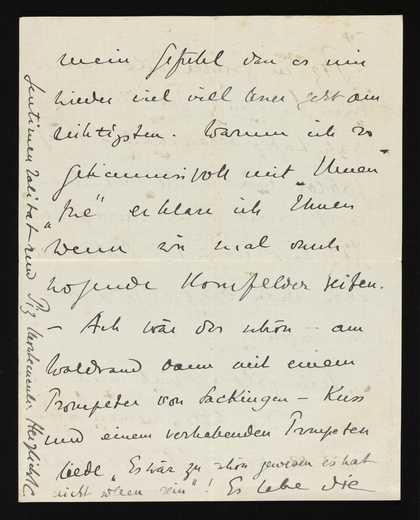 mein Gefühl dan es mir
wieder viel viel besser geht am
richtigsten. Warum ich so
geheimnisvoll mit "Ihnen"
"Sie" erkläre ich Ihnen
wenn wir mal durch
wogende Kornfelder reiten.
– Ach wär das schön – am
Waldrand dann mit einem
Trompeter von Säckingen – Kuss
und einem verhabenden Trompeten
liede "Es wär zu schön gewesen es hat
nicht sollen sein"! Es lebe die
Sentimentalität und Herzlichst